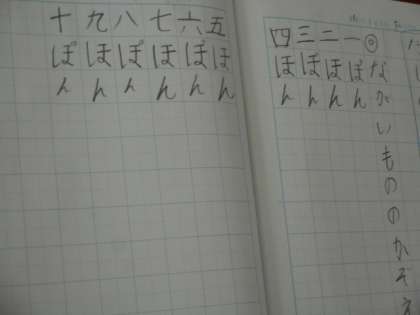 ◎ながいもののかぞえ
一ぽん
二ほん
三ぼん
四ほん
五ほん
六ぽん
七ほん
八ぽん
九ほん
十ぽん